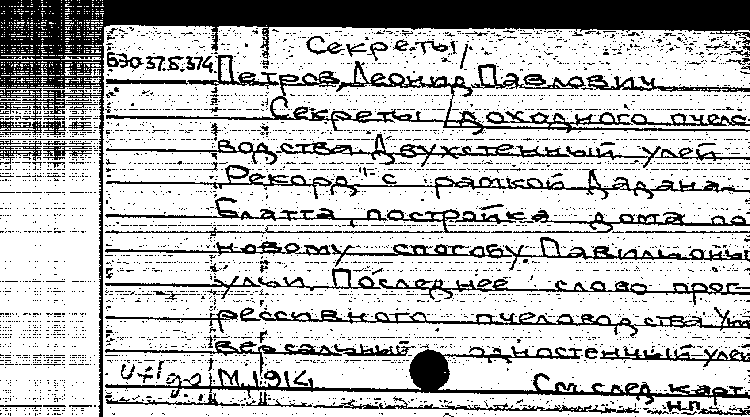 Секреты
Петров, Леонид Павлович.
Секреты доходного пчело
водства. Двухстенный улей
„Рекорд"- с рамкой Дадана-
Блатта, постройка дома по
новому способу. Павильоны
ульи. Последнее слово прог-
рессивного пчеловодства. Уни
версальный одностенный улей
М., 1914
См. след. карт.
н.п.